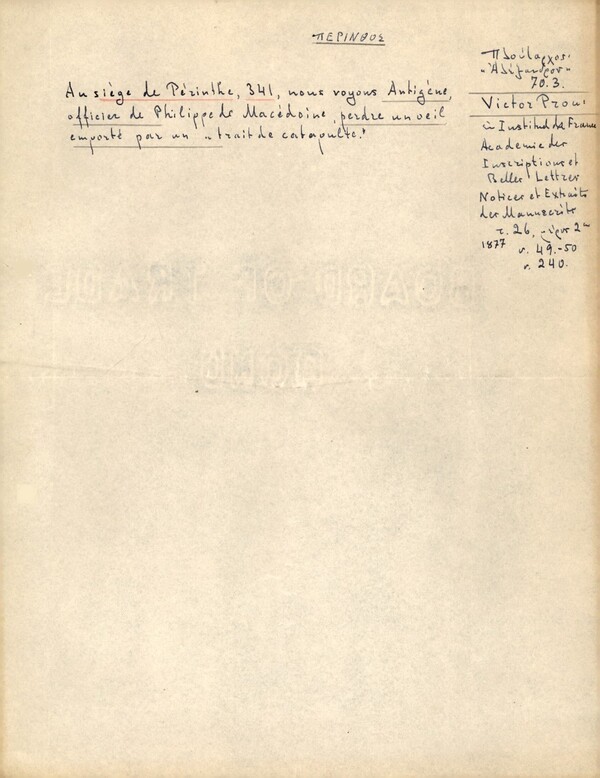 ΠΕΡΙΝΘΟΣ
Au siège de Périnthe, 341, nous voyons Antigène,
officier de Philippe de Macédoine, perdre un oeil
emporté par un "trait de catapulte."
Πλούταρχος
"Ἀλέξανδρος"
70.3.
Victor Prou
in Institut de France
Academie des
Inscriptions et
Belles Lettres
Notices et Extraits
des Manuscrits
τ. 26, μέρος 2ον
1877 σ. 49.-50
σ. 240.
BOARD OF TRADE